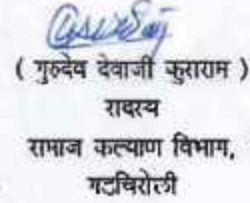 ( गुरुदेव देवाजी कुराराम )
सदस्य
समाज कल्याण विभाग,
गडचिरोली